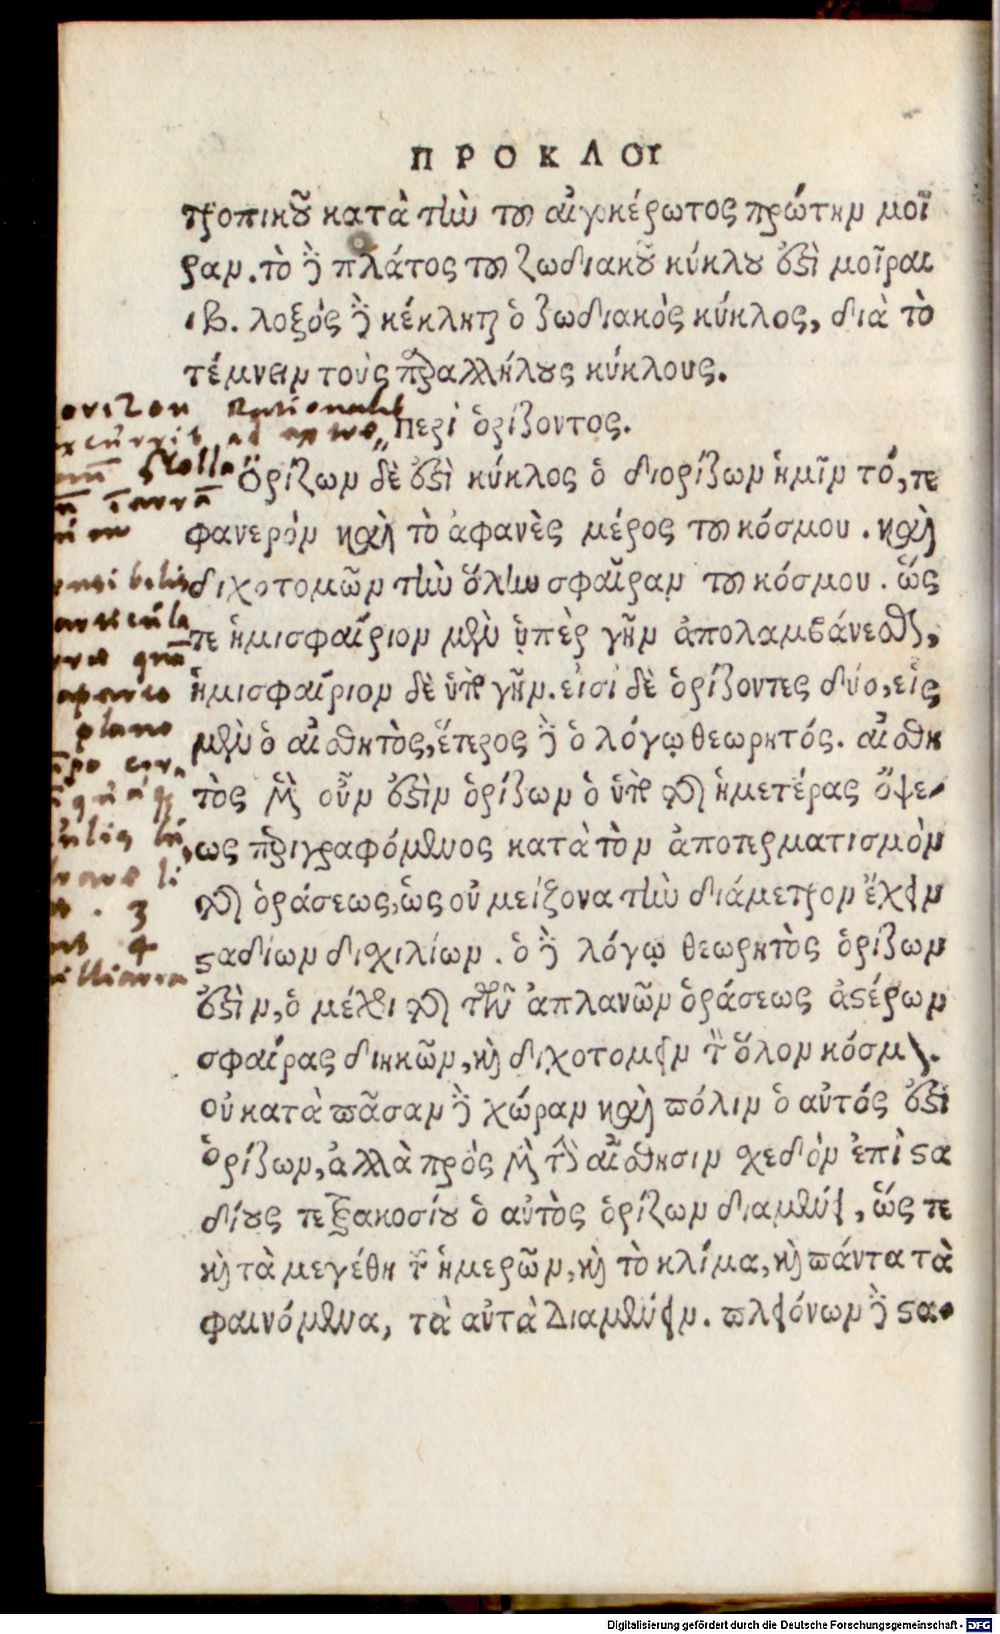 ΠΡΟΚΛΟΥ
τροπικοῦ κατὰ τὴν τοῦ αἰγκέρωτος πρώτην μοῖ
ραν. τὸ δὲ πλάτος τοῦ ζωδιακοῦ κύκλου ἐστὶ μοῖραι
ιβ. λοξὸς δὲ κέκληται ὁ ζωδιακὸς κύκλος, διὰ τὸ
τέμνειν τοὺς παραλλήλους κύκλους.
Περὶ ὁρίζοντος.
Ὁρίζων δὲ ἐστὶ κύκλος ὁ διορίζων ἡμῖν τό, τε
φανερὸν καὶ τὸ ἀφανὲς μέρος τοῦ κόσμου. καὶ
διχοτομῶν τὴν ὅλην σφαῖραν τοῦ κόσμου. ὥς
τε ἡμισφαίριον μὲν ὑπὲρ γῆν ἀπολαμβάνεσθαι,
ἡμισφαίριον δὲ ὑπὸ γῆν. εἰσὶ δὲ ὁρίζοντες δύο, εἷς
μὲν ὁ αἰσθητὸς, ἕτερος δὲ ὁ λόγῳ θεωρητός. αἰσθη
τὸς μὲν οὖν ἐστὶν ὁρίζων ὁ ὑπὸ τῆς ἡμετέρας ὄψε-
ως περιγραφόμενος κατὰ τὸν ἀποτερματισμὸν
τῆς ὁράσεως, ὡς οὐ μείζονα τὴν διάμετρον ἔχειν
σταδίων διχιλίων. ὁ δὲ λόγῳ θεωρητὸς ὁρίζων
ἐστὶν, ὁ μέχρι τῆς τῶν ἀπλανῶν ὁράσεως ἀστέρων
σφαίρας διηκῶν, καὶ διχοτομεῖν τὸν ὅλον κόσμον.
οὐ κατὰ πᾶσαν δὲ χώραν καὶ πόλιν ὁ αὐτός ἐστι
ὁρίζων, ἀλλὰ πρὸς μὲν τὴν αἴσθησιν σχεδὸν ἐπὶ στα
δίους τετρακοσίου ὁ αὐτὸς ὁρίζων διαμένει, ὥς τε
καὶ τὰ μεγέθη τῶν ἡμερῶν, καὶ τὸ κλίμα, καὶ πάντα τὰ
φαινόμενα, τὰ αὐτὰ διαμένειν. πλειόνων δὲ στα-
orizon Rationalis
Stolla
plano
3
4
Digitalisierung gefördert durch die Deutsche Forschungsgemeinschaft - DFG